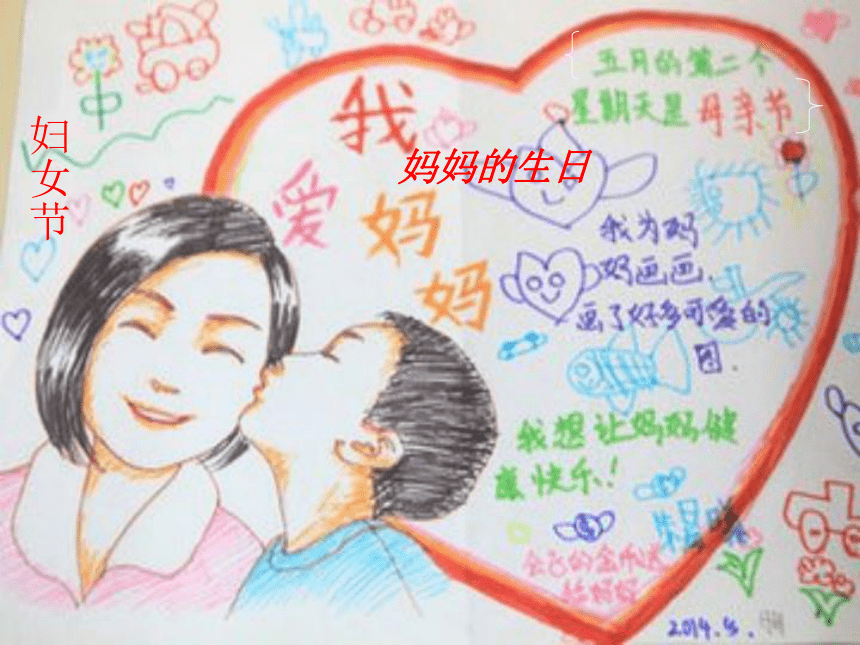 妇女节
五月的第二个
星期天是母亲节
我爱妈妈
妈妈的生日
我为妈
妈画画、
画了好多可爱的
图.
我想让妈妈健
康快乐!
给妈妈
2014.5.